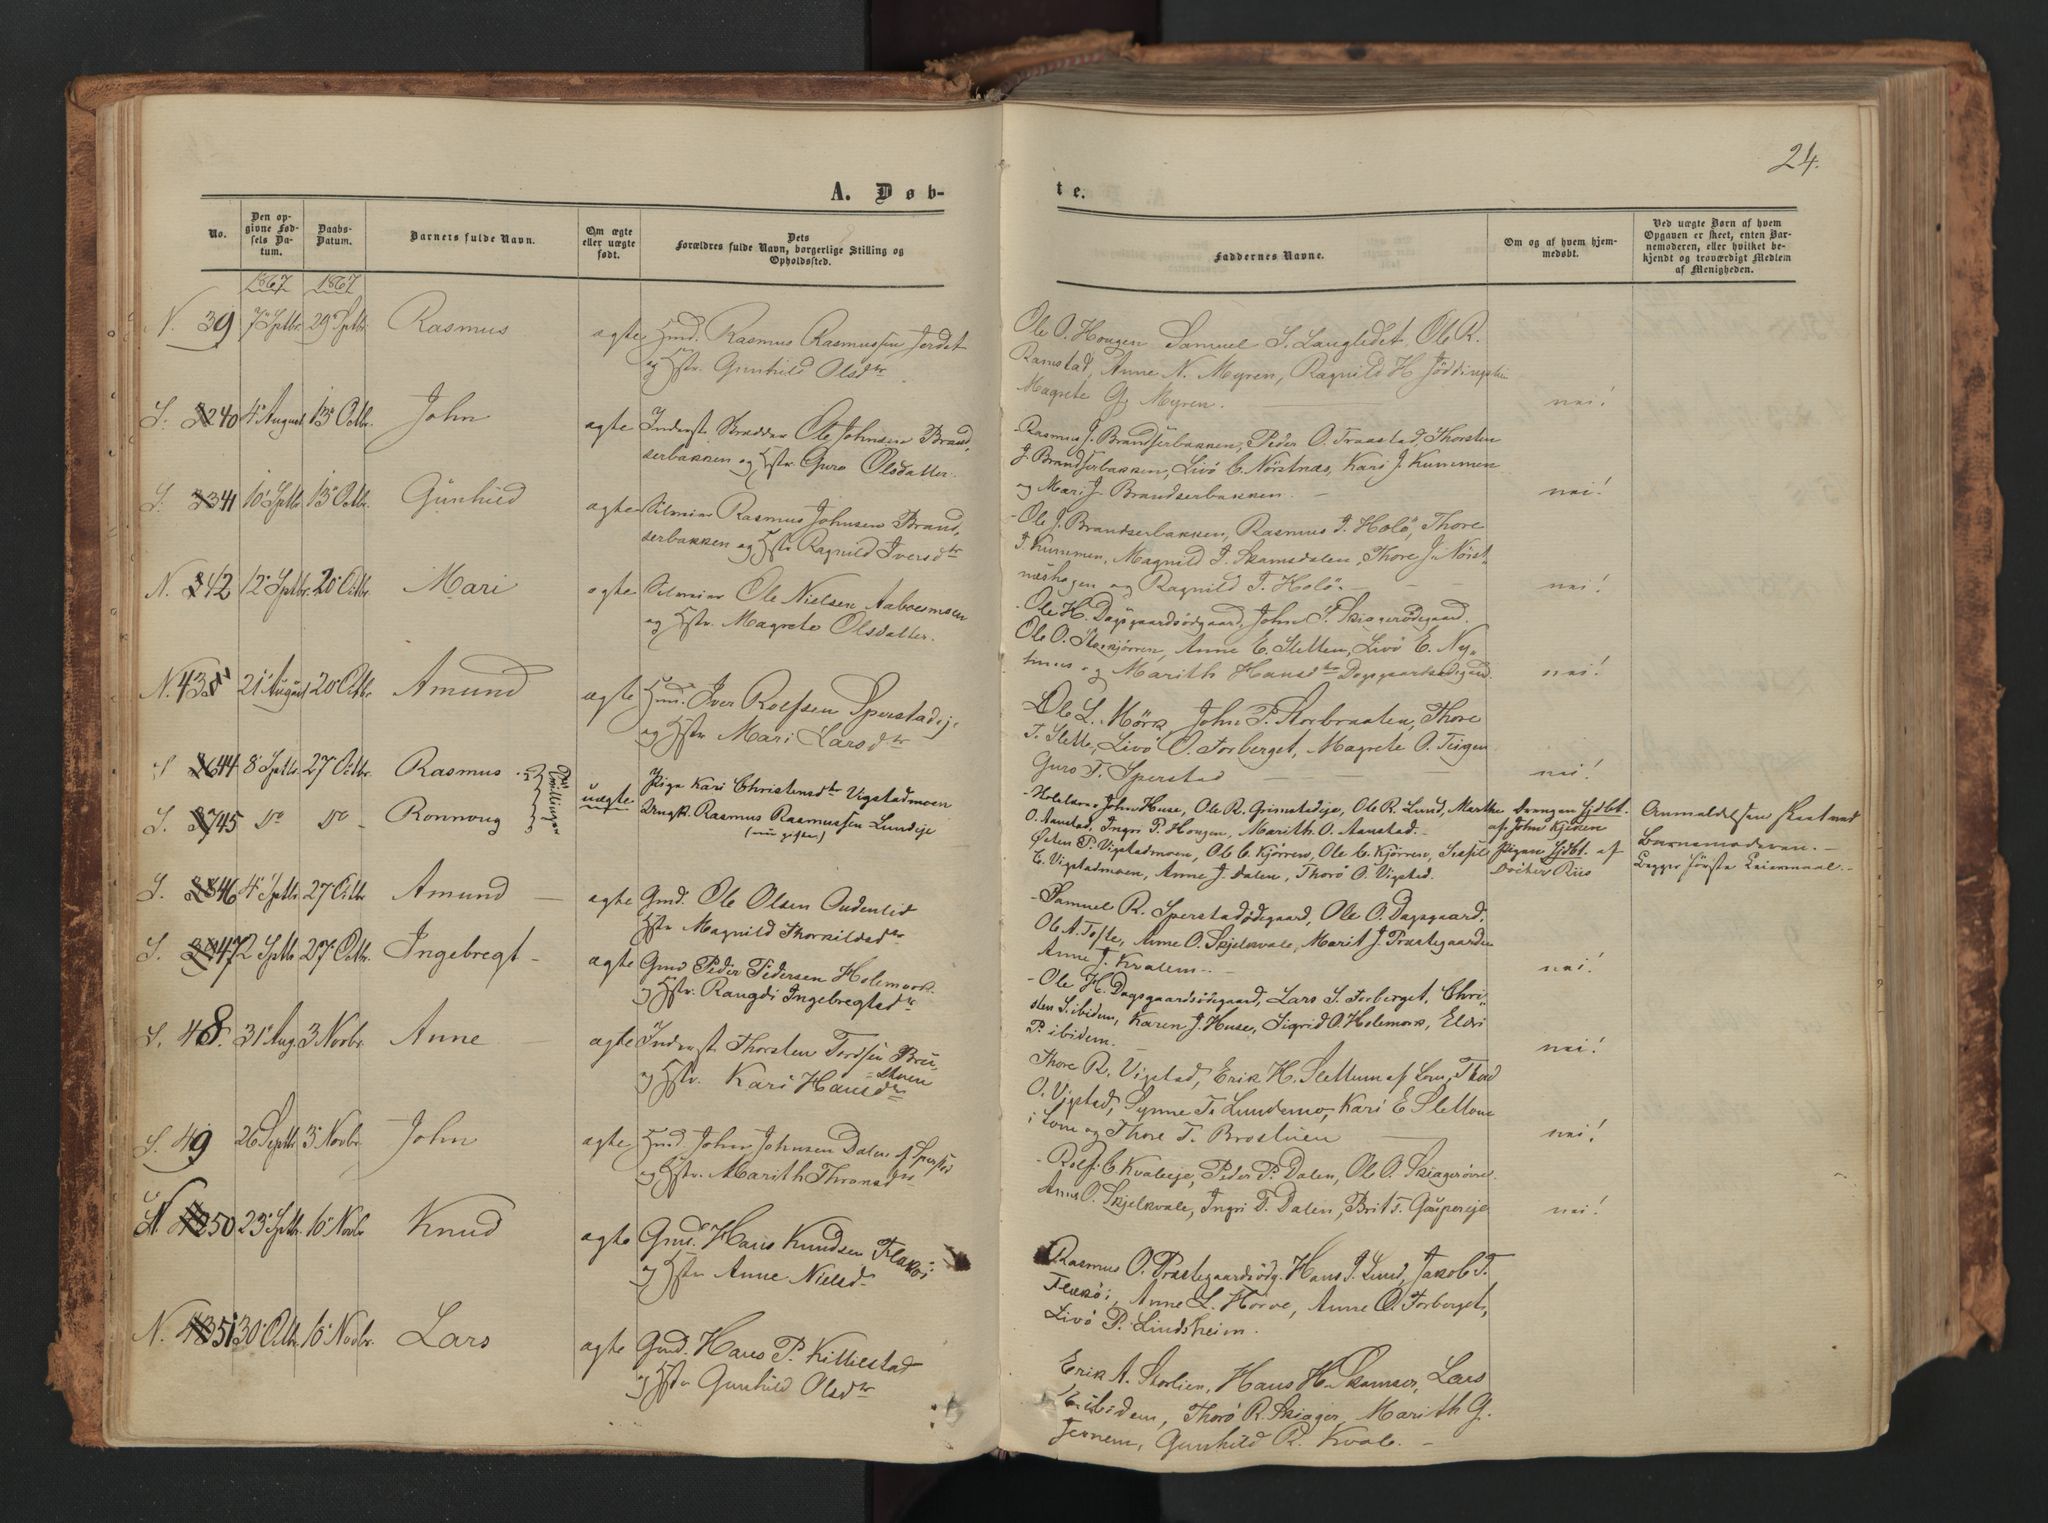 24.
A. Døb-
te.
No.
Den opgivne Fødsels Datum.
Daabs-Datum.
Barnets fulde Navn.
Om ægte eller uægte født.
Dets Forældres fulde Navn, borgerlige Stilling og Opholdssted.
Faddernes Navne.
Om og af hvem hjemmedøbt.
Ved uægte Børn af hvem Opgaven er skeet, enten Barnemoderen, eller hvilket bekjendt og troværdigt Medlem af Menigheden.
1867 1867
N. 39 7 Septbr. 29 Septbr. Rasmus ægte Gmd. Rasmus Rasmussen Jordet
og Hstr. Gunhild Olsdtr
Ole O. Hougen Samuel S. Langledet, Ole R.
Ramstad, Anne N. Myren, Ragnild H.
Magrete G. Myren. nei!
S. 40 4 August 13 Octbr. John ægte Inderst Ole Johnsen Brand-
serbakken og Hstr Guro Olsdatter.
Rasmus J. Brandserbakken, Peder O. Fraastad, Thorsten
J. Brandserbakken, Livö C. Nörstnæs, Kari J. Kummen
og Mari J. Brandserbakken. nei!
S. 41 10 Septbr. 13 Octbr. Gunhild ægte Selveier Rasmus Johnsen Brand-
serbakken og Hstr Ragnild Iversdtr
Ole J. Brandserbakken, Rasmus I. Holö, Thore
I. Kummen, Magnild I. Skamsdalen, Thore J. Nörst-
næshagen og Ragnild I. Holö. nei!
N. 42 12 Septbr. 20 Octbr. Mari ægte Selveier Ole Nielsen Aaboemoen
og Hstr. Magrete Olsdatter.
Ole H. Dagsgaardsödgaard, John P. Skiagerödegaard.
Ole O. Storkjörren, Anne E. Sletten, Livö E. Ny-
og Marith Hansdtr Dagsgaardsödgard. nei!
N. 43 21 August 20 Octbr. Amund ægte Gmd. Iver Rolfsen Sperstadeje
og Hstr Mari Larsdtr
Ole L. Mörk, John P. Storbraaten, Thore
T. Slette, Livö O. Forberget, Magrete O. Teigen
Guro T. Sperstad nei!
S 44 8 Septbr. 27 Octbr. Rasmus Tvillinger uægte Pige Kari Christensdtr Vigstadmoen
S. 45 Do Do Ronnoug Ungk. Rasmus Rasmussen Lundeje
(nu gifte)
John Huse, Ole R. Grimstadeje, Ole R. Lund, Marthe Drengen hjdbt. Anmeldelsen skeet ved
O. Aanstad, Ingri P. Hougen, Marith O. Aanstad. af John Kjörren Barnemoderen.
Østen P. Vigstadmoen, Ole C. Kjörren, Ole C. Kjörren, Pigen hjdbt. af Begges förste Leiermaal.
E. Vigstadmoen, Anne J. Dalen, Thorö O. Vigsted. Docter Riis
S. 46 4 Septbr. 27 Octbr Amund ægte Gmd. Ole Olsen Oudenlid
Hstr Magnild Thorkildsdtr
Samuel R. Sperstadödegaard, Ole O. Dagsgaard,
Ole A. Tofte, Anne O. Skjelkvale, Marit J. Præstegaarden
Anne J. Kvalem. nei!
S. 47 2 Septbr 27 Octbr. Ingebregt ægte Gmd Peder Pedersen Holemork
og Hstr. Rangdi Ingebregtsdtr
Ole H. Dagsgaardsödegaard, Lars S. Forberget, Chri-
sten S. ibidem, Karen J. Huse, Sigrid O. Holemork, Eldri
P. ibidem. nei!
S. 48. 31 Aug. 3 Novbr. Anne ægte Inderst Thorsten Tordsen Bru-
og Hstr. Kari Hansdtr
Thore R. Vigstad, Erik H. Slettum af Lom, Thord
O. Vigstad, Synne T. Lundemo, Kari E Slettum
i Lom og Thore T. nei!
S. 49 26 Septbr. 3 Novbr. John ægte Gmd. John Johnsen Dalen af Sperstad
og Hstr. Marith Thronsdtr
Rolf C. Kvaleeje, Peder P. Dalen, Ole O.
Anne O. Skjelkvale, Ingri T. Dalen, Brit S. Gaupereje nei!
N. 50 23 Septbr. 10 Novbr Knud ægte Gmd. Hans Knudsen Flækøi
og Hstr Anne Nielsd.
Rasmus O. Præstegaardsödg. Hans J. Lund, Jakob T.
Flækøi, Anne L. Horve, Anne O. Forberget,
Livö P. Lindsheim.
N. 51 30 Octbr. 10 Novbr. Lars ægte Gmd. Hans P. Killiestad
og Hstr Gunhild Olsdtr
Erik A. Storlien, Hans H. Skamser, Lars
E. ibidem, Thorö R. Skiager, Marith G.
Jernem, Gunhild R. Kvale.